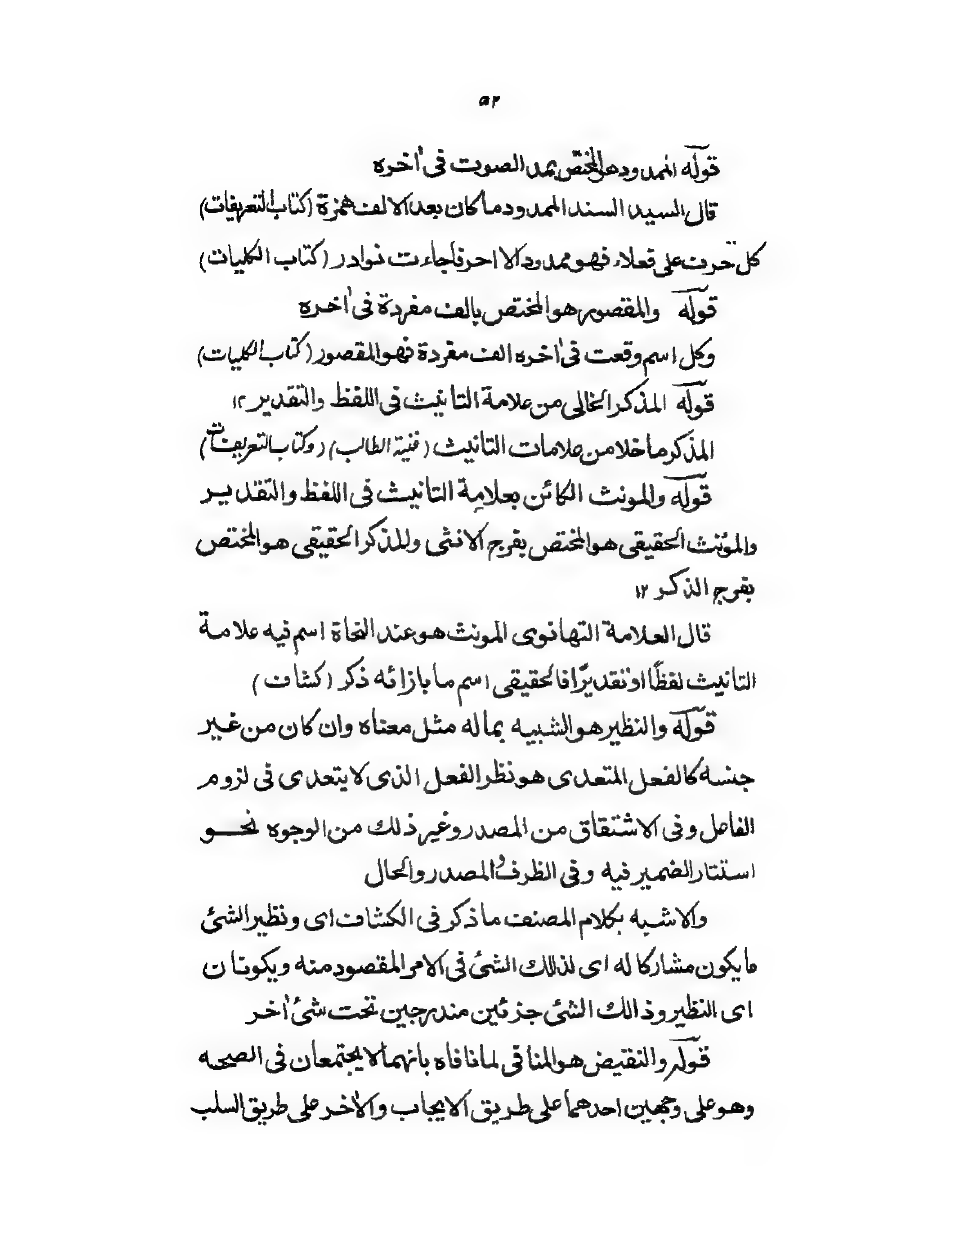 ٥٢
قوله الممدود هو المختص بمد الصوت فى اٰخره
قال السيد السند الممدود ما كان بعد الالف همزة (كتاب التعريفات)
كل حرف على فعلاء فهو ممدود الا احرفا جاءت نوادر (كتاب الكليات)
قوله والمقصور هو المختص بالف مفردة فى اٰخره
وكل اسم وقعت فى اٰخره الف مفردة فهو المقصور (كتاب الكليات)
قوله المذكر الخالى من علامة التانيث فى اللفظ والتقدير ١٢
المذكر ما خلا من علامات التانيث (فنية الطالب) (وكتاب التعريفات)
قوله والمونث الكائن بعلامة التانيث فى اللفظ والتقدير
والمؤنث الحقيقى هو المختص بفرج الانثى وللذكر الحقيقى هو المختص
بفرج الذكر ١٢
قال العلامة التهانوى المونث هو عند النحاة اسم فيه علامة
التانيث لفظًا او تقديرًا فالحقيقى اسم ما بازائه ذكر (كشاف)
قوله والنظير هو الشبيه بما له مثل معناه وان كان من غير
جنسه كالفعل المتعدى هو نظر الفعل الذى لا يتعدى فى لزوم
الفاعل وفى الاشتقاق من المصدر وغير ذلك من الوجوه نحو
استتار الضمير فيه وفى الظرف والمصدر والحال
والاشبه بكلام المصنف ما ذكر فى الكشاف اى ونظير الشئ
ما يكون مشاركا له اى لذلك الشئ فى الامر المقصود منه ويكونان
اى النظير وذالك الشئ جزئين مندرجين تحت شئ اٰخر
قوله والنقيض هو المنافى لما نافاه بانهما لا يجتمعان فى الصحه
وهو على وجهين احدهما على طريق الايجاب والاٰخر على طريق السلب